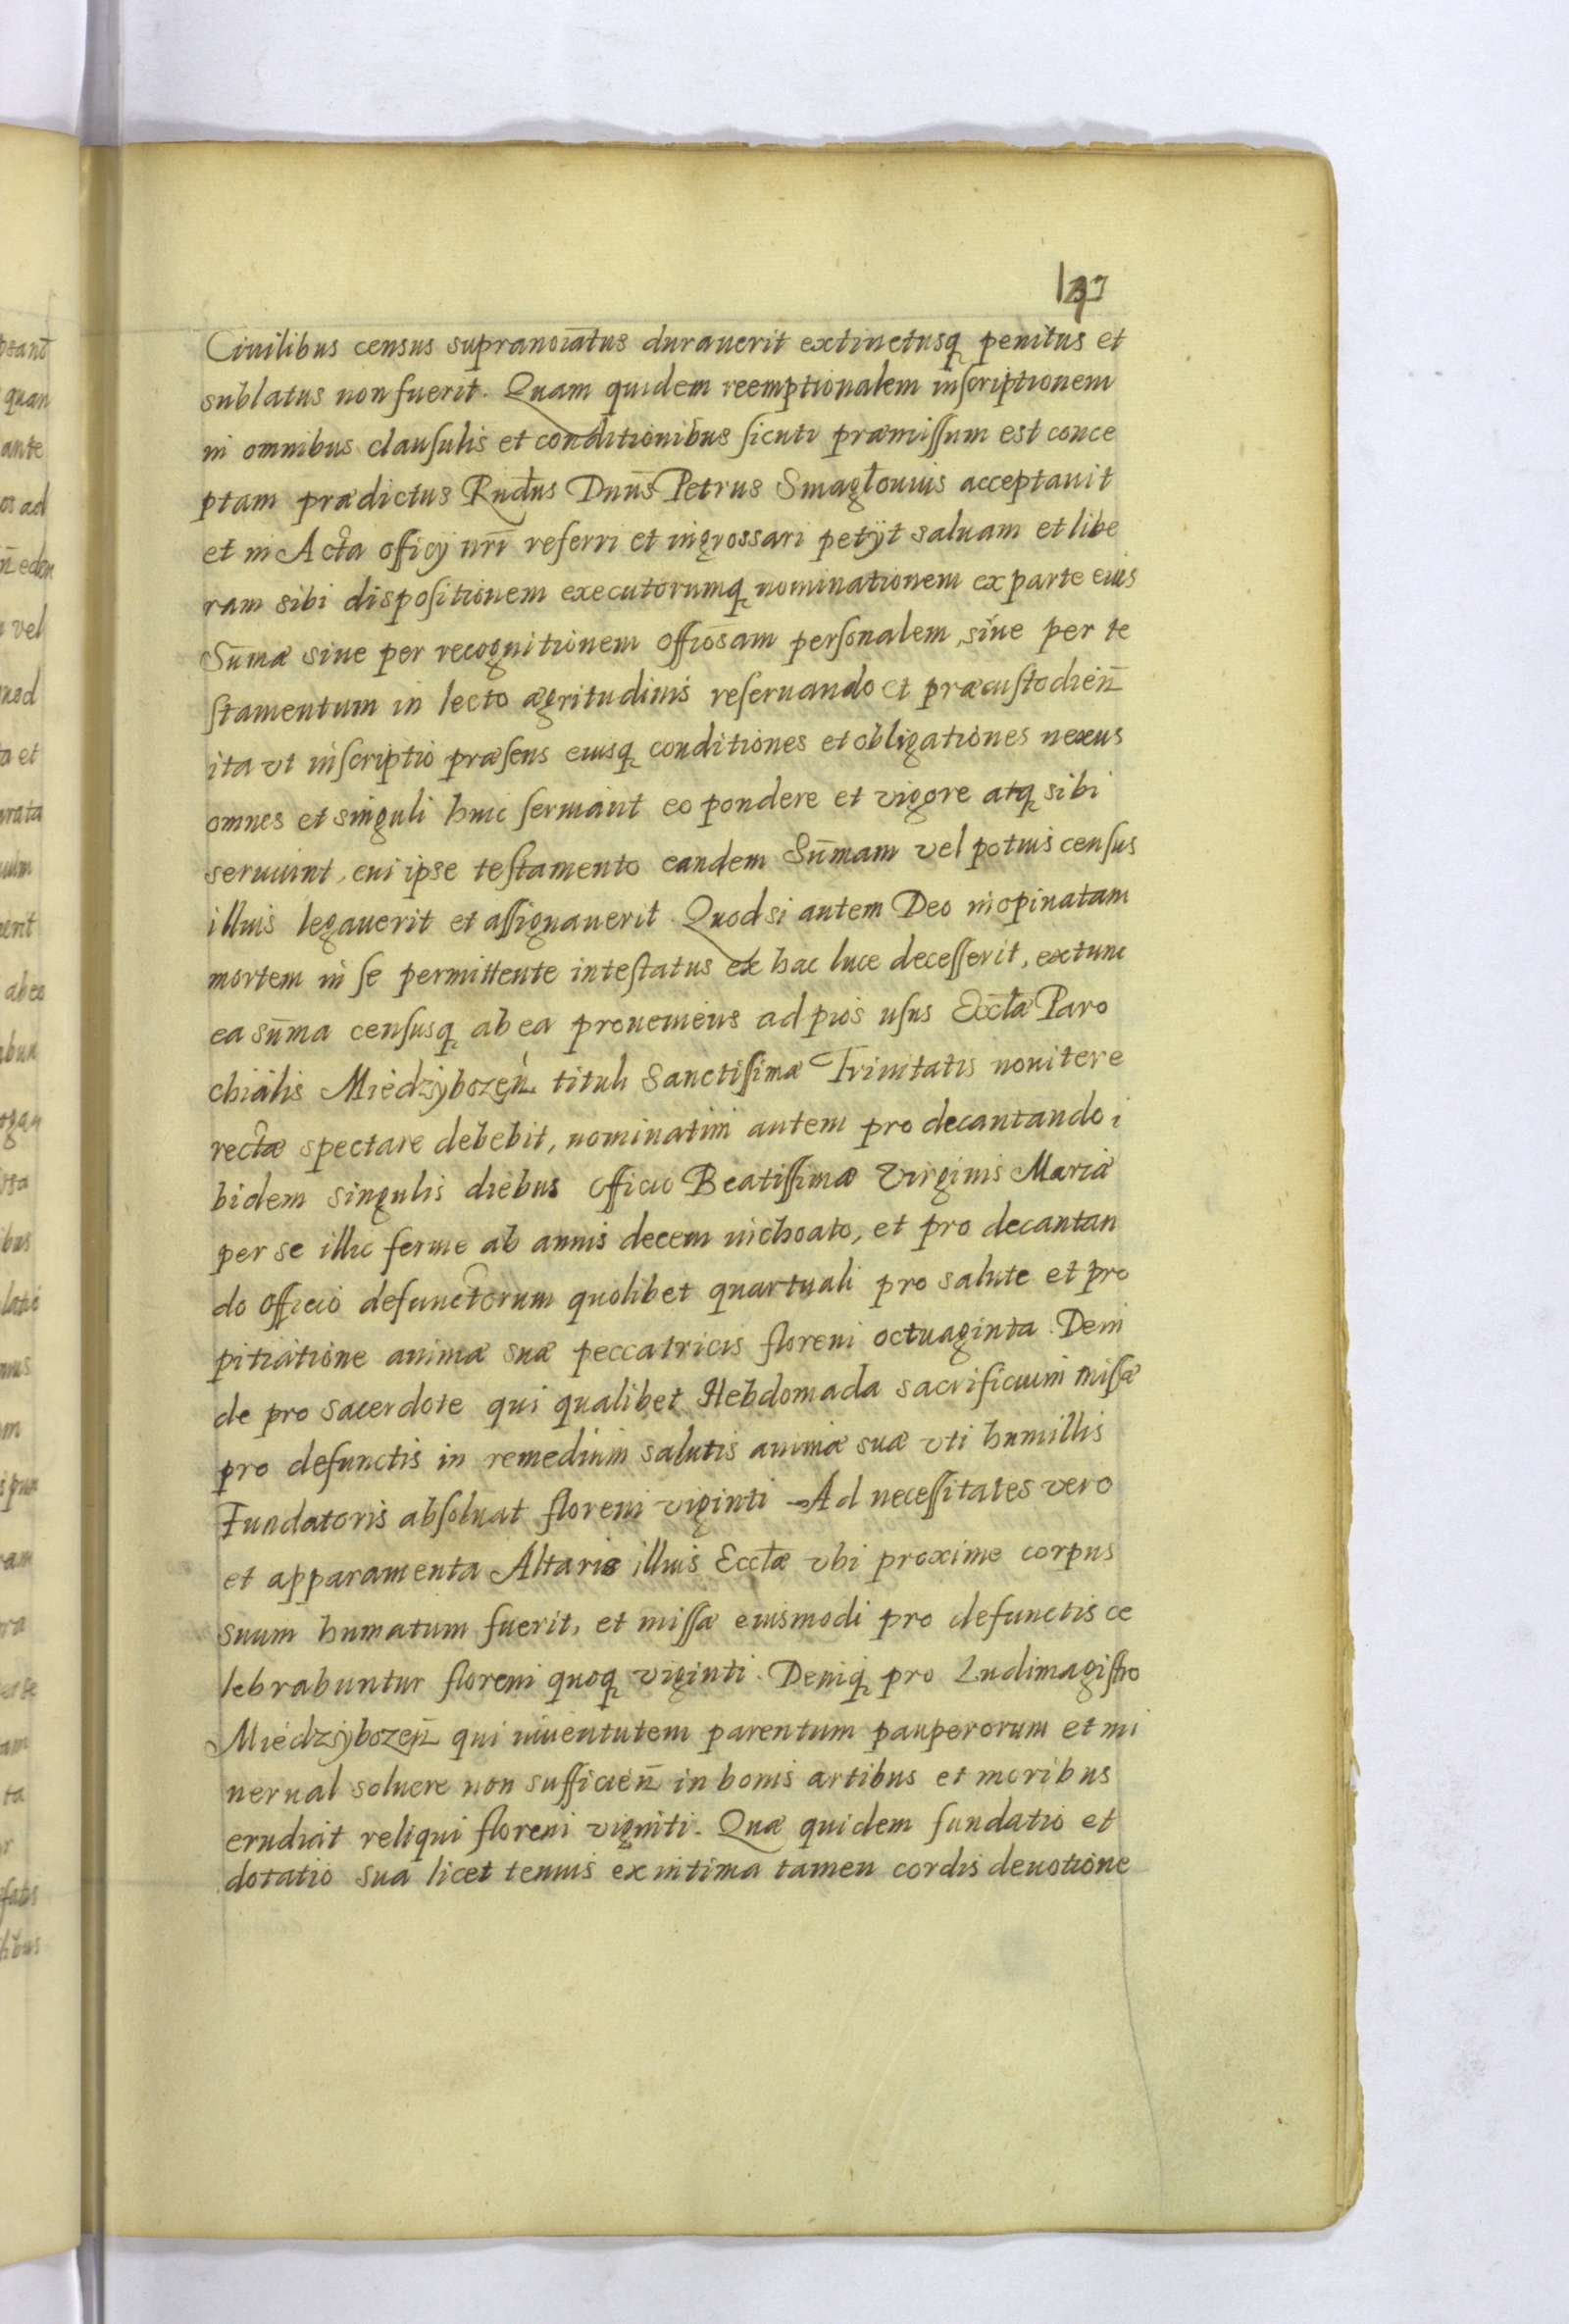 Ciuilibus census supranoiatus durauerit extinctusq penitus et
sublatus non fuerit. Quam quidem reemptionalem inscriptionem
in omnibus clausulis et conditionibus sicuti præmissum est conce
ptam prædictus Rndus Dnus Petrus Smagłouius acceptauit
et in Acta officij nri referri et ingrossari petijt saluam et libe
ram sibi dispositionem executorumq nominationem ex parte eius
Sum̄æ siue per recognitionem offiosam personalem, siue per te
stamentum in lecto ægritudinis reseruando et præcustodien̄
ita vt inscriptio præsens eiusq conditiones et obligationes nexus
omnes et singuli huic seruiant eo pondere et vigore atq sibi
seruiunt, cui ipse testamento eandem Sum̄am vel potius census
illius legauerit et assignauerit. Quod si autem Deo inopinatam
mortem in se permittente intestatus ex hac luce decesserit, extunc
ea sum̄a censusq ab ea proueniens ad pios usus Eccłæ Paro
chialis Miedzÿbozen̄ tituli Sanctissimæ Trinitatis nouiter e
rectæ spectare debebit, nominatim autem pro decantando i
bidem singulis diebus officio Beatissimæ Virginis Mariæ
per se illic ferme ab annis decem inchoato, et pro decantan
do officio defunctorum quolibet quartuali pro salute et pro
pitiatione animæ suæ peccatricis floreni octuaginta. Dein
de pro sacerdote qui qualibet Hebdomada sacrificium missæ
pro defunctis in remedium salutis animæ suæ vti humillis
Fundatoris absoluat floreni viginti. Ad necessitates vero
et apparamenta Altaris illius Eccłæ vbi proxime corpus
suum humatum fuerit, et missæ eiusmodi pro defunctis ce
lebrabuntur floreni quoq viginti. Deniq pro Ludimagistro
Miedzÿbozen̄ qui iuuentutem parentum pauperorum et mi
nerual soluere non sufficien̄ in bonis artibus et moribus
erudiat reliqui floreni viginti. Quæ quidem fundatio et
dotatio sua licet tenuis ex intima tamen cordis deuotione